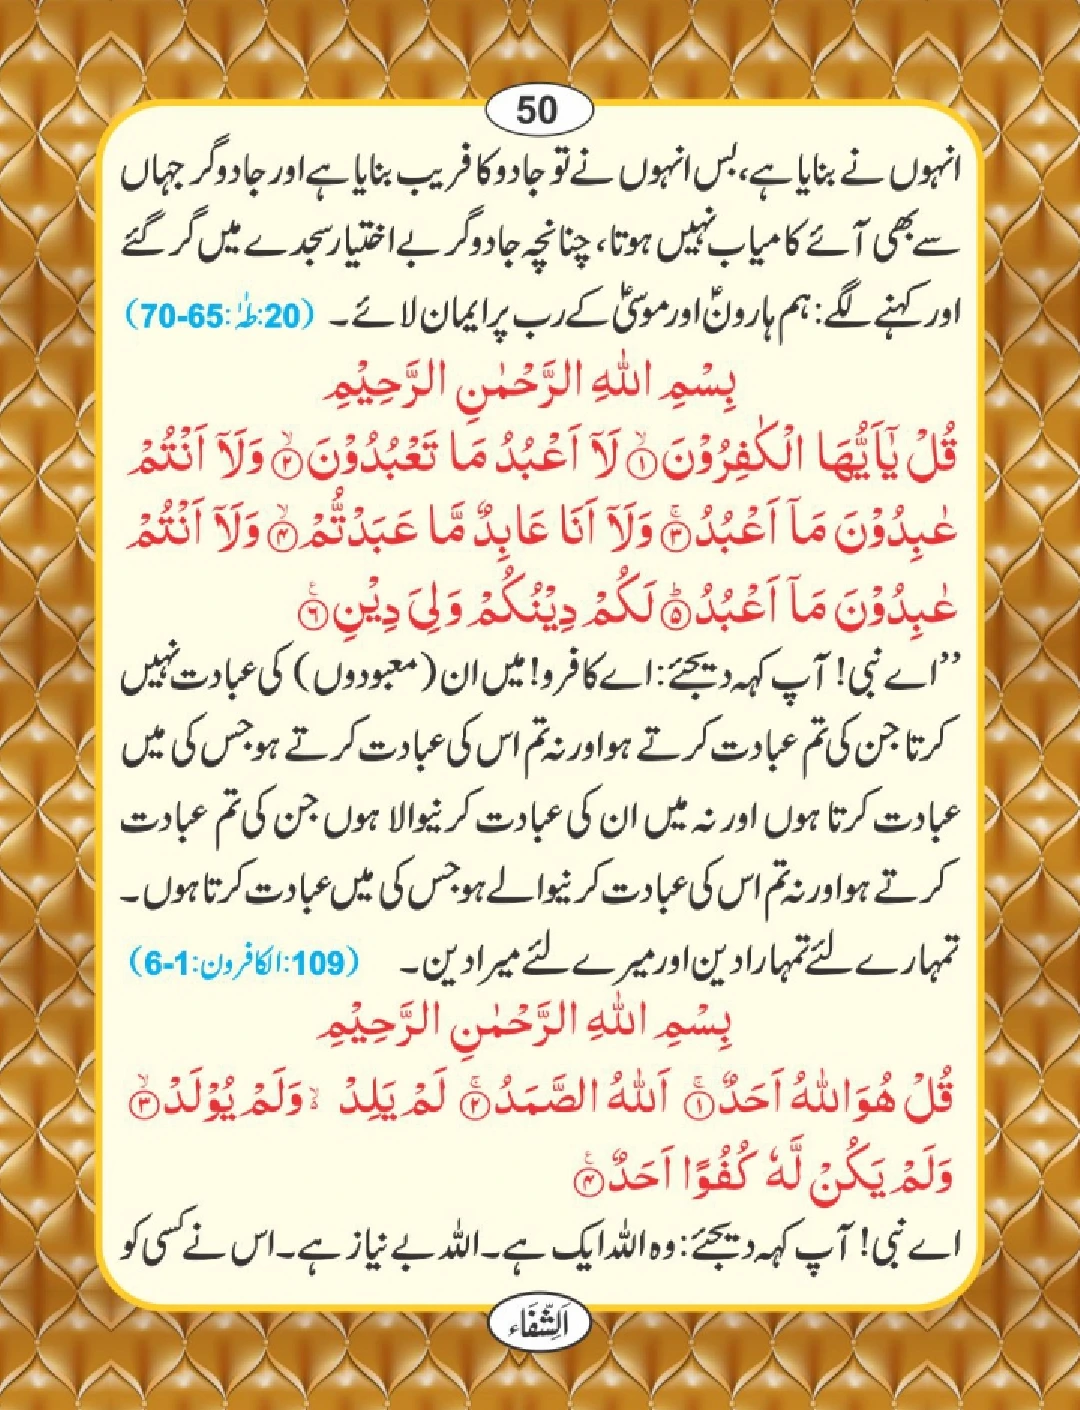 50
انہوں نے بنایا ہے، بس انہوں نے تو جادو کا فریب بنایا ہے اور جادوگر جہاں
سے بھی آئے کامیاب نہیں ہوتا، چنانچہ جادوگر بے اختیار سجدے میں گر گئے
اور کہنے لگے: ہم ہارونؑ اور موسیٰؑ کے رب پر ایمان لائے۔ (20:طٰہٰ:65-70)
بِسْمِ اللّٰهِ الرَّحْمٰنِ الرَّحِیْمِ
قُلْ یٰۤاَیُّهَا الْكٰفِرُوْنَ ۙ﴿۱﴾ لَاۤ اَعْبُدُ مَا تَعْبُدُوْنَ ۙ﴿۲﴾ وَلَاۤ اَنْتُمْ
عٰبِدُوْنَ مَاۤ اَعْبُدُ ۚ﴿۳﴾ وَلَاۤ اَنَا عَابِدٌ مَّا عَبَدْتُّمْ ۙ﴿۴﴾ وَلَاۤ اَنْتُمْ
عٰبِدُوْنَ مَاۤ اَعْبُدُ ؕ﴿۵﴾ لَكُمْ دِیْنُكُمْ وَلِیَ دِیْنِ ﴿۶﴾
”اے نبی! آپ کہہ دیجئے: اے کافرو! میں ان (معبودوں) کی عبادت نہیں
کرتا جن کی تم عبادت کرتے ہو اور نہ تم اس کی عبادت کرتے ہو جس کی میں
عبادت کرتا ہوں اور نہ میں ان کی عبادت کرنیوالا ہوں جن کی تم عبادت
کرتے ہو اور نہ تم اس کی عبادت کرنیوالے ہو جس کی میں عبادت کرتا ہوں۔
تمہارے لئے تمہارا دین اور میرے لئے میرا دین۔ (109:الکافرون:1-6)
بِسْمِ اللّٰهِ الرَّحْمٰنِ الرَّحِیْمِ
قُلْ هُوَ اللّٰهُ اَحَدٌ ۚ﴿۱﴾ اَللّٰهُ الصَّمَدُ ۚ﴿۲﴾ لَمْ یَلِدْ ۙ وَلَمْ یُوْلَدْ ۙ﴿۳﴾
وَلَمْ یَكُنْ لَّهٗ كُفُوًا اَحَدٌ ﴿۴﴾
اے نبی! آپ کہہ دیجئے: وہ اللہ ایک ہے۔ اللہ بے نیاز ہے۔ اس نے کسی کو
اَلشِّفَاء